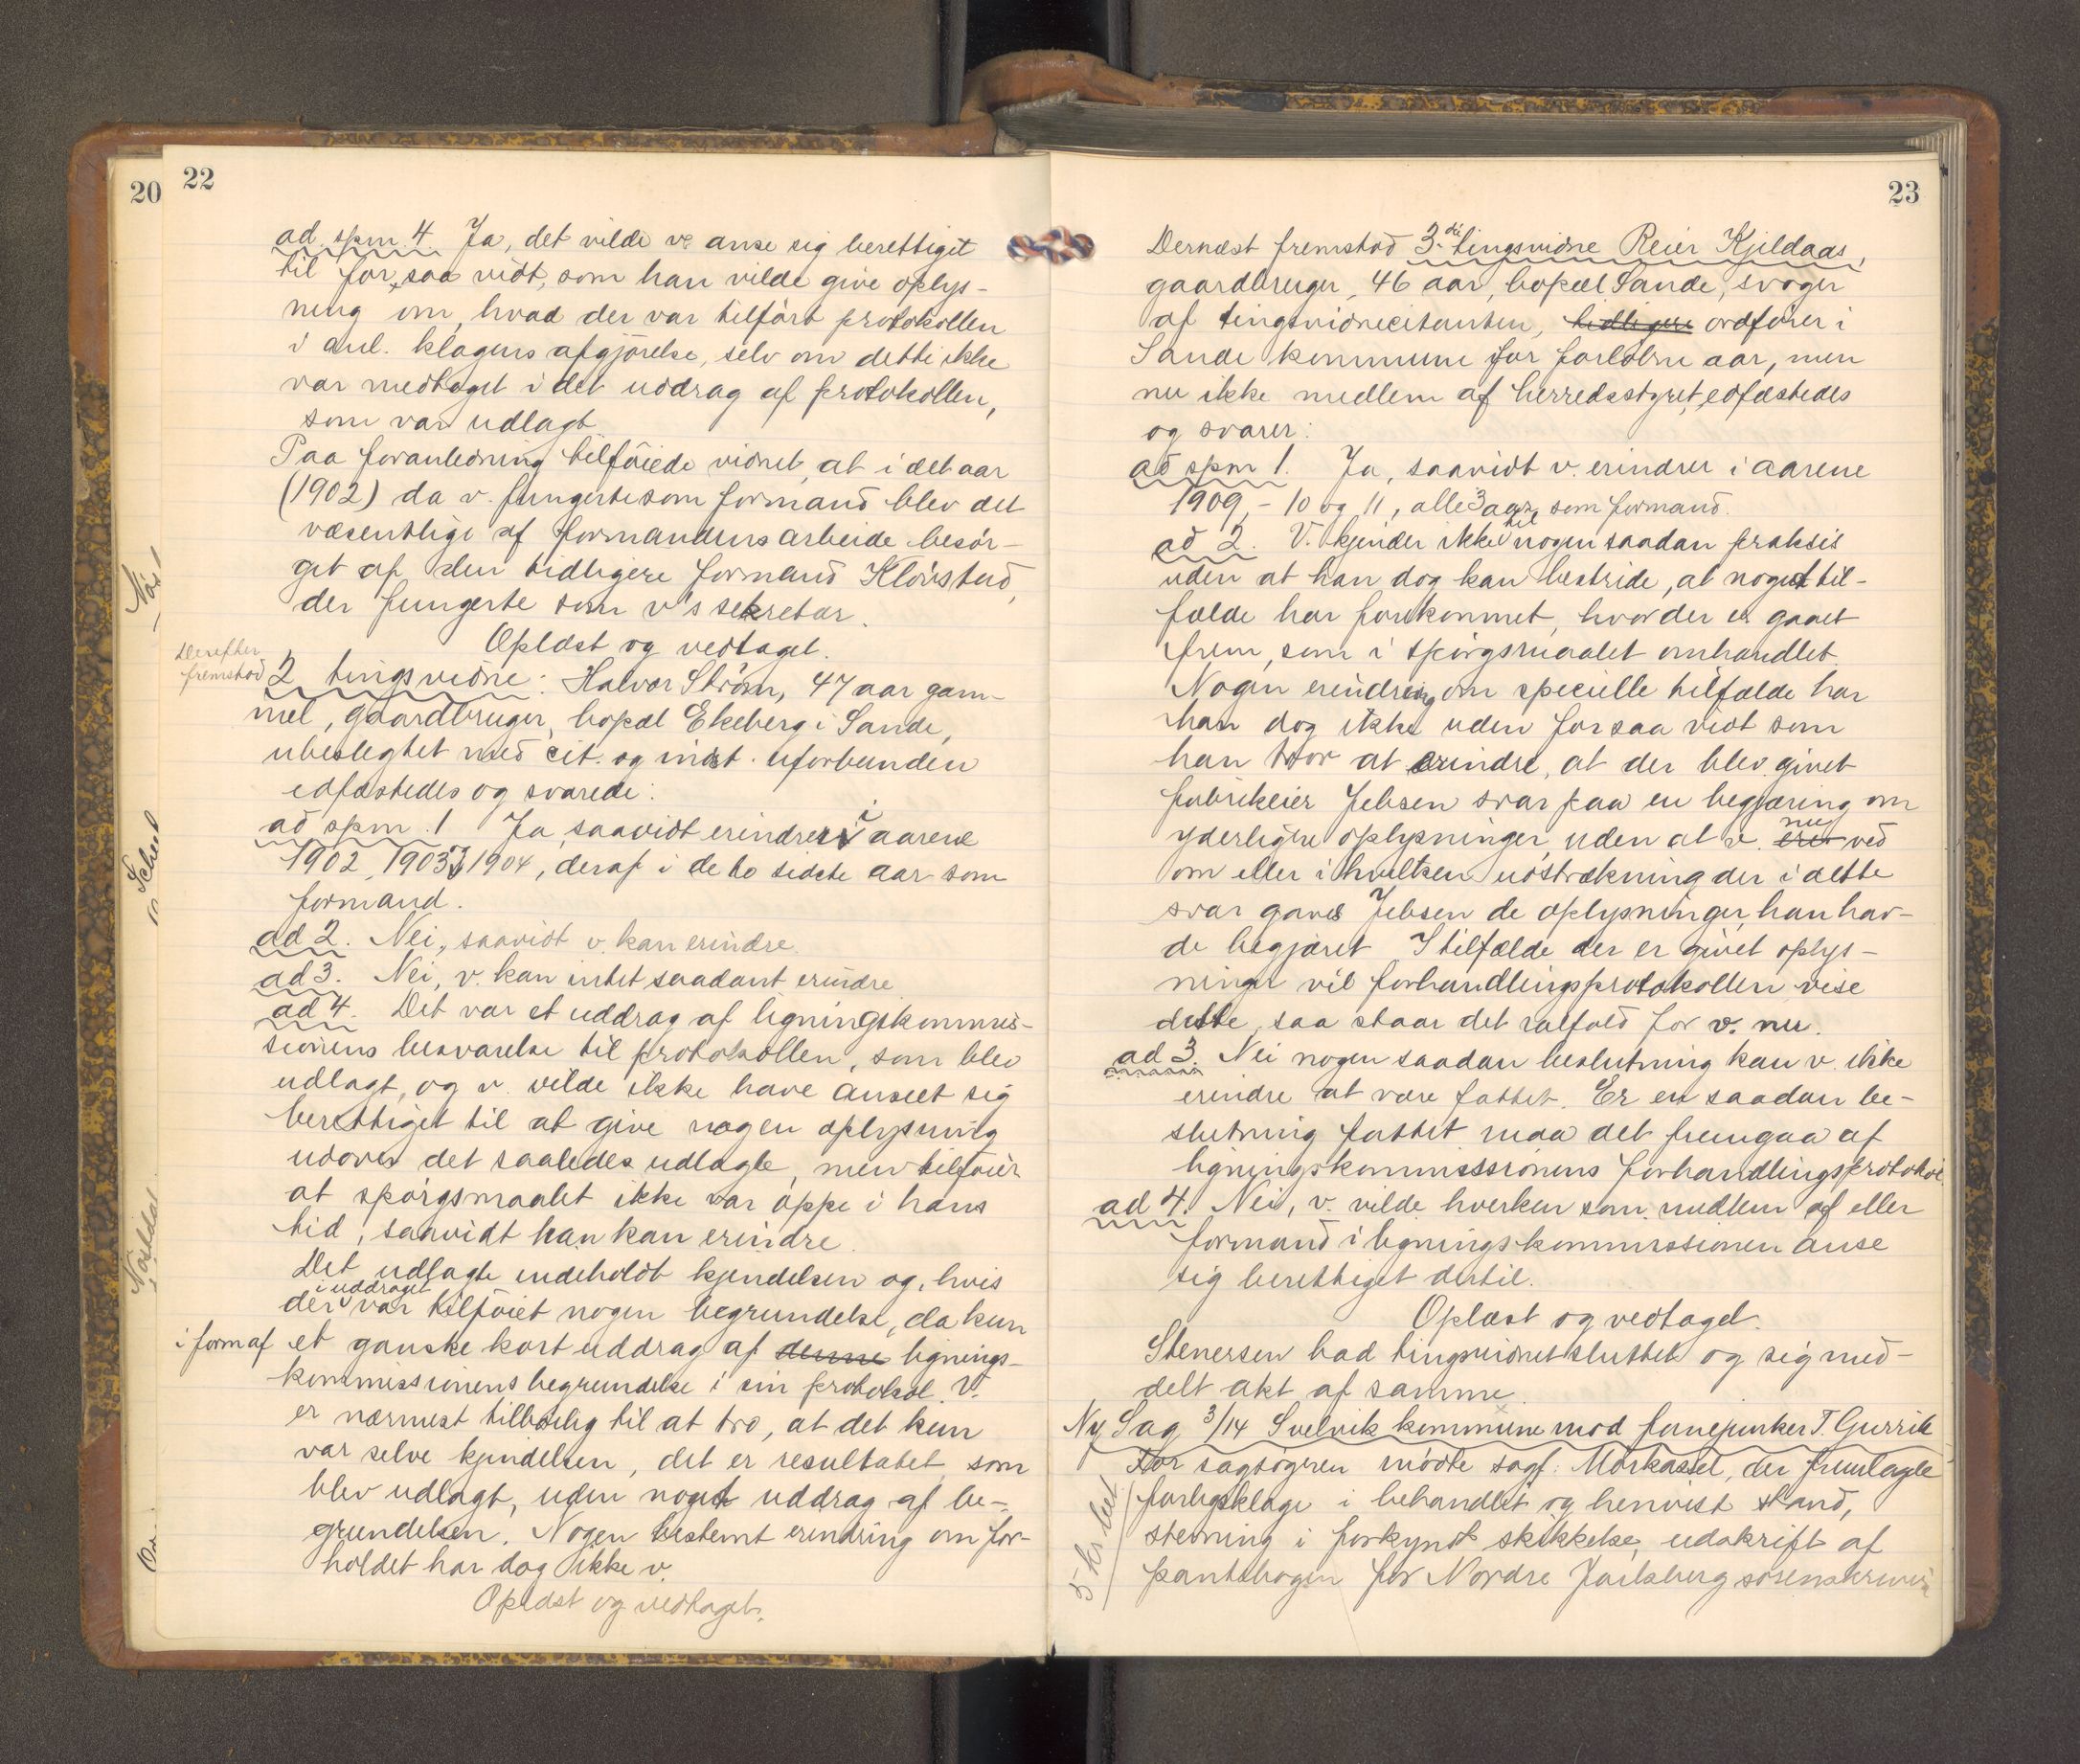 20
22
ad. spm. 4. Ja, det vilde v. anse sig berettiget
til for saa vidt, som han vilde give oplys-
ning om, hvad der var tilført protokollen
i anl. klagens afgjørelse, selv om dette ikke
var medtaget i det uddrag af protokollen,
som var udlagt.
Paa foranledning tilføiede vidnet, at i det aar
(1902) da v. fungerte som formand blev det
væsentlige af formandens arbeide besør-
get af den tidligere formand Kløvstad,
der fungerte som v's sekretær.
Oplæst og vedtaget.
Derefter
fremstod 2 tingsvidne: Halvor Strøm, 47 aar gam-
mel, gaardbruger, bopæl Ekeberg i Sande,
ubeslegtet med cit. og indst. uforbunden
edfæstedes og svarede:
ad spm. 1 Ja, saavidt erindres i aarene
1902, 1903 og 1904, deraf i de to sidste aar som
formand.
ad 2. Nei, saavidt v. kan erindre.
ad 3. Nei, v. kan intet saadant erindre.
ad 4. Det var et uddrag af ligningskommis-
sionens besvarelse til protokollen, som blev
udlagt, og v. vilde ikke have anseet sig
berettiget til at give nogen oplysning
udover det saaledes udlagte, men tilføier
at spørgsmaalet ikke var oppe i hans
tid, saavidt han kan erindre.
Det udlagte indeholdt kjendelsen og, hvis
i uddraget
der var tilføiet nogen begrundelse, da kun
i form af et ganske kort uddrag af denne lignings-
kommissionens begrundelse i sin protokol. V.
er nærmest tilbøielig til at tro, at det kun
var selve kjendelsen, det er resultatet som
blev udlagt, uden noget uddrag af be-
grundelsen. Nogen bestemt erindring om for-
holdet har dog ikke v.
Oplæst og vedtaget.
23
Dernæst fremstod 3.die tingsvidne Reier Kjeldaas,
gaardbruger, 46 aar, bopæl Sande, svoger
af tingsvidnecitanten, tidligere ordfører i
Sande kommune for forløbne aar, men
nu ikke medlem af herredsstyret, edfæstedes
og svarer:
ad spm 1. Ja, saavidt v. erindrer i aarene
1909, - 10 og 11, alle 3 aar som formand.
ad 2. V. kjender ikke til nogen saadan praksis
uden at han dog kan bestride, at noget til-
fælde har forekommet, hvor der er gaaet
frem, som i spørgsmaalet omhandlet.
Nogen erindring om specielle tilfælde har
han dog ikke uden for saa vidt som
han tror at erindre, at der blev givet
fabrikeier Jebsen svar paa en begjæring om
yderligere oplysninger, uden at v. nu ved
om eller i hvilken udstrækning der i dette
svar gaves Jebsen de oplysninger, han hav-
de begjæret. I tilfælde der er givet oplys-
ninger vil forhandlingsprotokollen vise
dette, saa staar det ialfald for v. nu.
ad 3. Nei nogen saadan beslutning kan v. ikke
erindre at være fattet. Er en saadan be-
slutning fattet maa det fremgaa af
ligningskommissionens forhandlingsprotokol
ad 4. Nei, v. vilde hverken som medlem af eller
formand i ligningskommissionen anse
sig berettiget dertil.
Oplæst og vedtaget.
Stenersen bad tingsvidnet sluttet og sig med-
delt akt af samme.
Ny Sag 3/14 Svelvik kommune mod fanejunker T. Gurrik
For sagsøgeren mødte sagf. Mørkassel, der fremlagde
forligsklage i behandlet og henvist stand,
stevning i forkyndt skikkelse, udskrift af
pantebogen for Nordre Jarlsberg sorenskriveri
5 kr. bet.